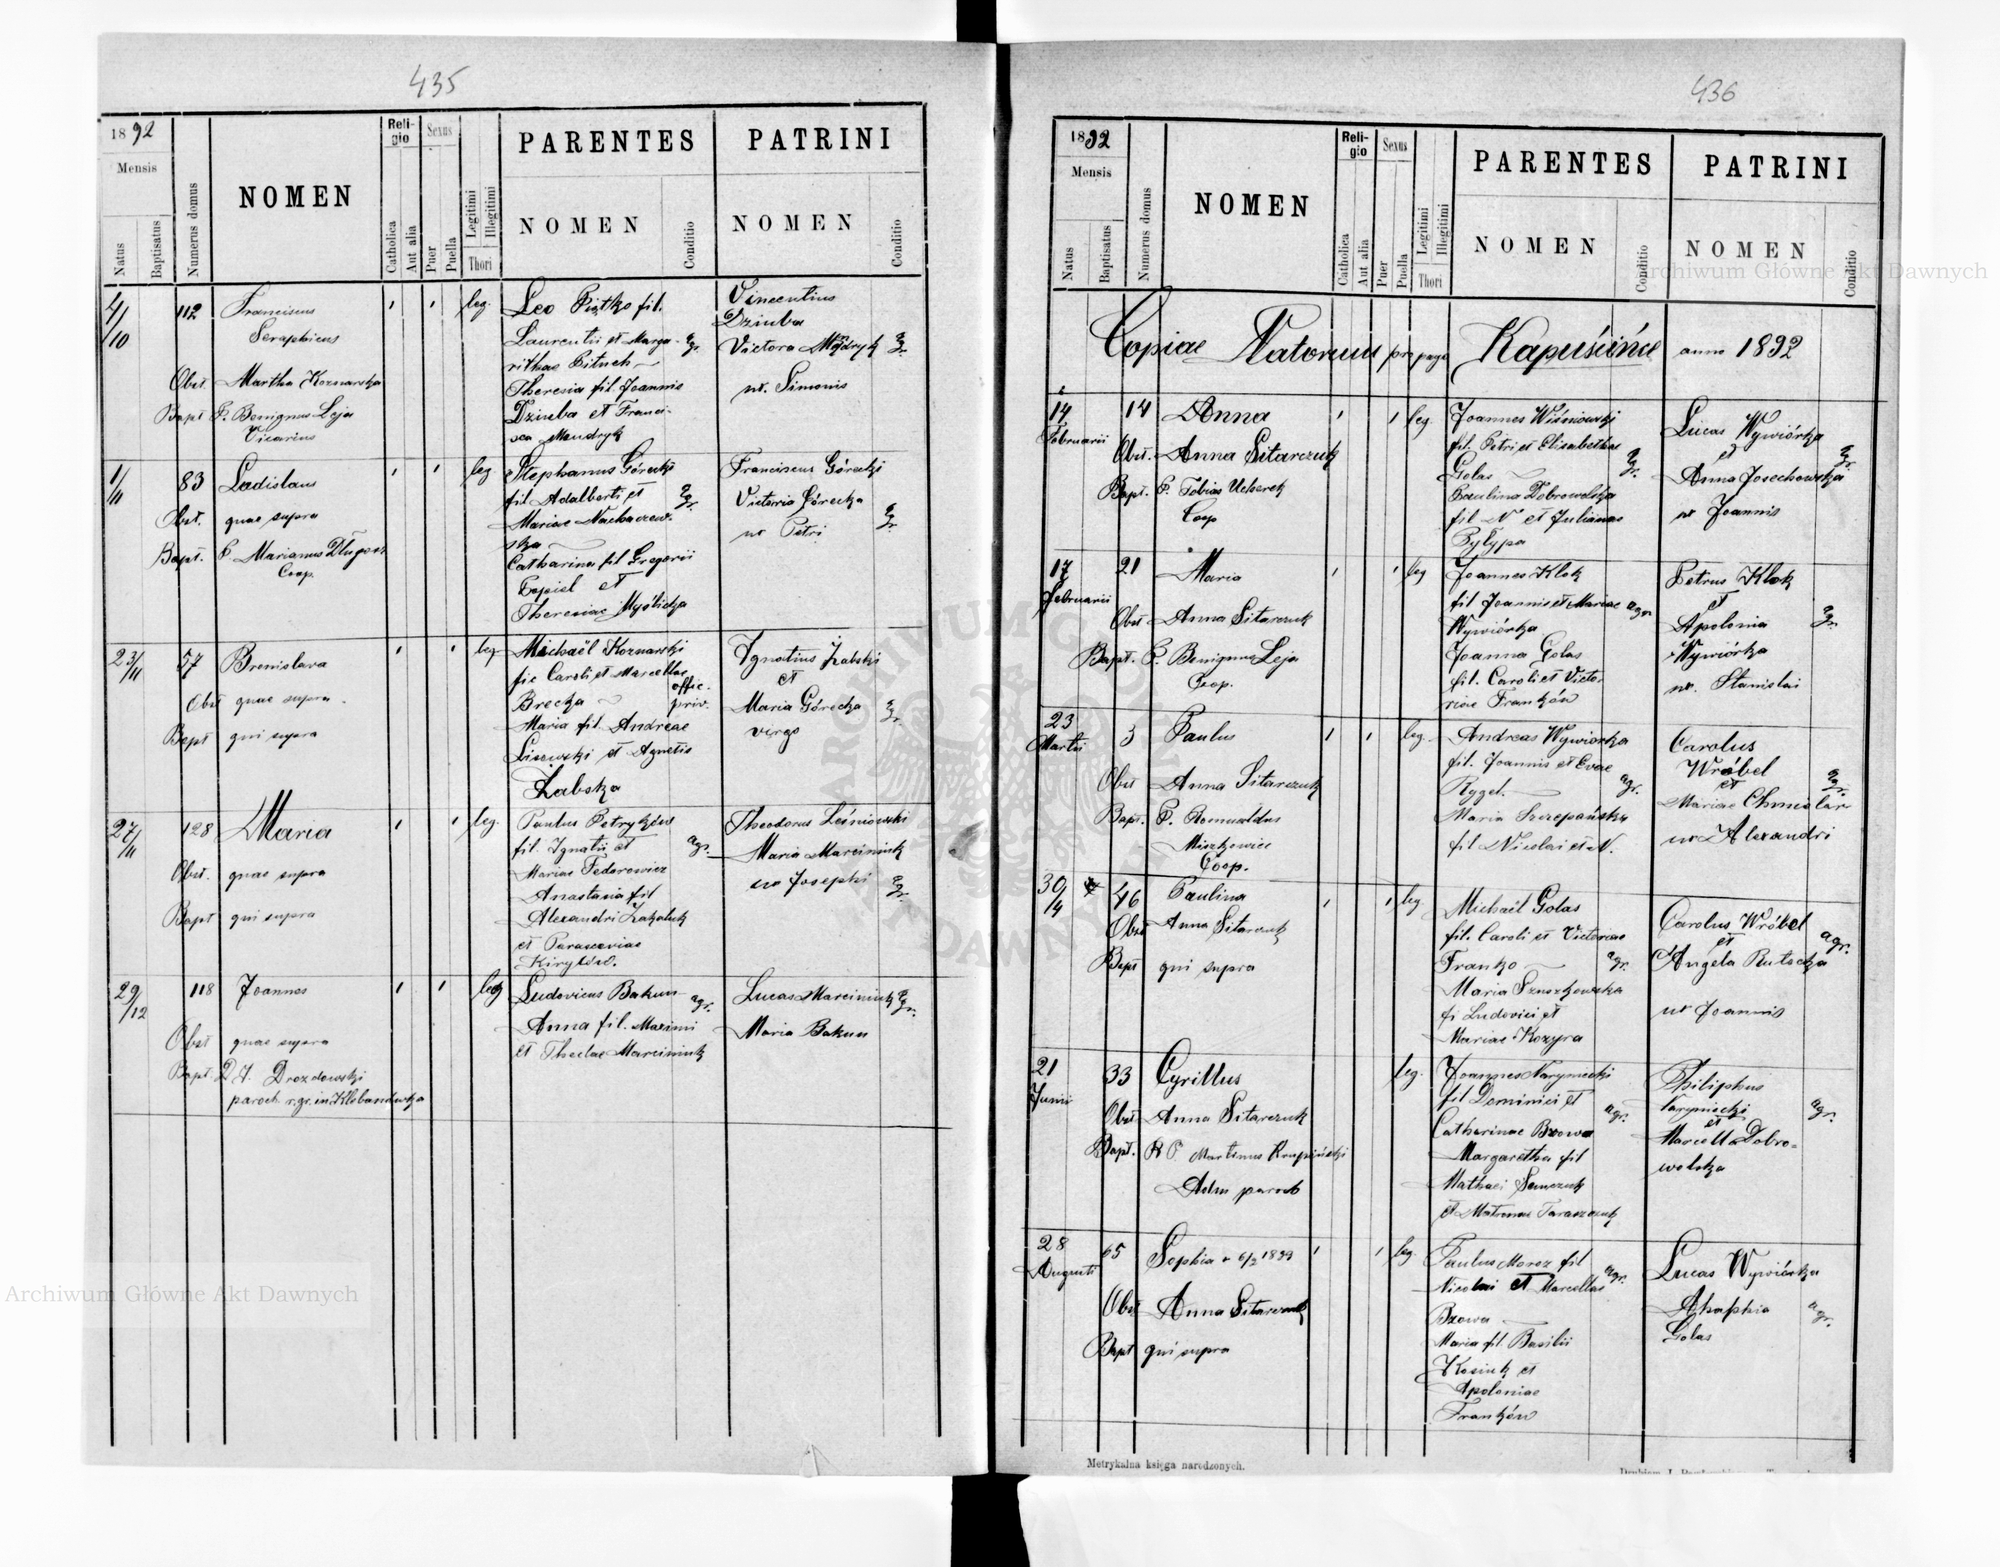 435
1892
Mensis
Natus
Baptisatus
Numerus domus
NOMEN
Religio
Catholica
Aut alia
Sexus
Puer
Puella
Legitimi
Illegitimi
Thori
PARENTES
NOMEN
Conditio
PATRINI
NOMEN
Conditio
4/10 112 Franciscus leg. Leo Piątko fil. Vincentius
Seraphicus Laurentii et Marga- agr. Dziuba
rithae Pituch Victora Mądryk agr.
Obst. Martha Koznarska Theresia fil. Joannis ux. Simonis
Bapt P. Benignus Leja Dziuba et Franci-
Vicarius sca Mendryk
1/11 83 Ladislaus leg Stephanus Górecki Franciscus Górecki
Obst. quae supra fil. Adalberti et agr. Victoria Górecka agr.
Mariae ux Petri
Bapt. P Marianus Długosz ska
Coop. Catharina fil Gregorii
et
Theresiae Myślicka
23/11 57 Bronislava leg Michaël Koznarski Ignatius Żabski
fil Caroli et Marcellae offic. et
Obst quae supra Brecka priv. Maria Górecka agr.
Bapt qui supra Maria fil. Andreae virgo
Lisowski et Agnetis
Żabska
27/11 128 Maria leg. Paulus Petryków Theodorus Leśniowski
fil. Ignatii et agr. Maria Marciniuk
Obst. quae supra Mariae Fedorowicz ux Josephi agr.
Bapt qui supra Anastasia fil
Alexandri Zakaluk
et Parasceviae
Kirylów.
29/12 118 Joannes leg Ludovicus Bakun agr. Lucas Marciniuk agr.
Obst quae supra Anna fil. Maximi Maria Bakun
et Theclae Marciniuk
Bapt D. Drozdowski
paroch. r. gr. in Klebanówka
436
1892
Mensis
Natus
Baptisatus
Numerus domus
NOMEN
Religio
Catholica
Aut alia
Sexus
Puer
Puella
Legitimi
Illegitimi
Thori
PARENTES
NOMEN
Conditio
PATRINI
NOMEN
Conditio
Copiae Natorum pro pago Kapuścińce anno 1892
14 Februarii 14 Anna leg Joannes Wiśniowski Lucas Wywiórka
Obst. Anna Sitarczuk fil. Petri et Elisabethae agr. et agr.
Golas Anna Josechowska
Bapt. P. Tobias Ucherek Paulina Dobrowolska ux Joannis
Coop fil N et Julianae
Pyłypa
17 Februarii 21 Maria leg Joannes Klok Petrus Klok
fil Joannis et Mariae agr. et agr.
Obst Anna Sitarczuk Wywiórka Apolonia
Bapt. P. Benignus Leja Joanna Golas Wywiórka
Coop. fil. Caroli et Victo- ux. Stanislai
riae Franków
23 Martii 3 Paulus leg. Andreas Wywiorka Carolus
fil. Joannis et Evae Wróbel
Obst Anna Sitarczuk Rygel agr. et agr.
Bapt. P. Romualdus Maria Szczepańska Mariae Chmielar
Miszkowicz fil Nicolai et N. ux Alexandri
Coop.
30/4 46 Paulina leg. Michaël Golas Carolus Wróbel agr.
Obst Anna Sitarczuk fil. Caroli et Victoriae et
Bapt qui supra Franko agr. Angela Rutecka
Maria Szuszkowska ux Joannis
fi Ludovici et
Mariae Kozyra
21 Junii 33 Cyrillus leg. Joannes Naryniecki Philiphus
fil Dominici et agr. Naryniecki agr.
Obst Anna Sitarczuk Catharinae Bzowa et
Bapt. R P Martinus Krupiński Margaretha fil Marcella Dobro-
Adm paroch Mathaei Semczuk wolska
et Matronae Taraszczuk
28 Augusti 65 Sophia + 6/2 1899 leg. Paulus Moroz fil Lucas Wywiórka
Nicolai et Marcellae agr.
Obst Anna Sitarczuk Bzowa Ahaphia agr.
Bapt qui supra Maria fil. Basilii Golas
Kosiuk et
Apoloniae
Franków
Metrykalna księga narodzonych.
Archiwum Główne Akt Dawnych
Archiwum Główne Akt Dawnych
ARCHIWUM GŁÓWNE AKT DAWNYCH